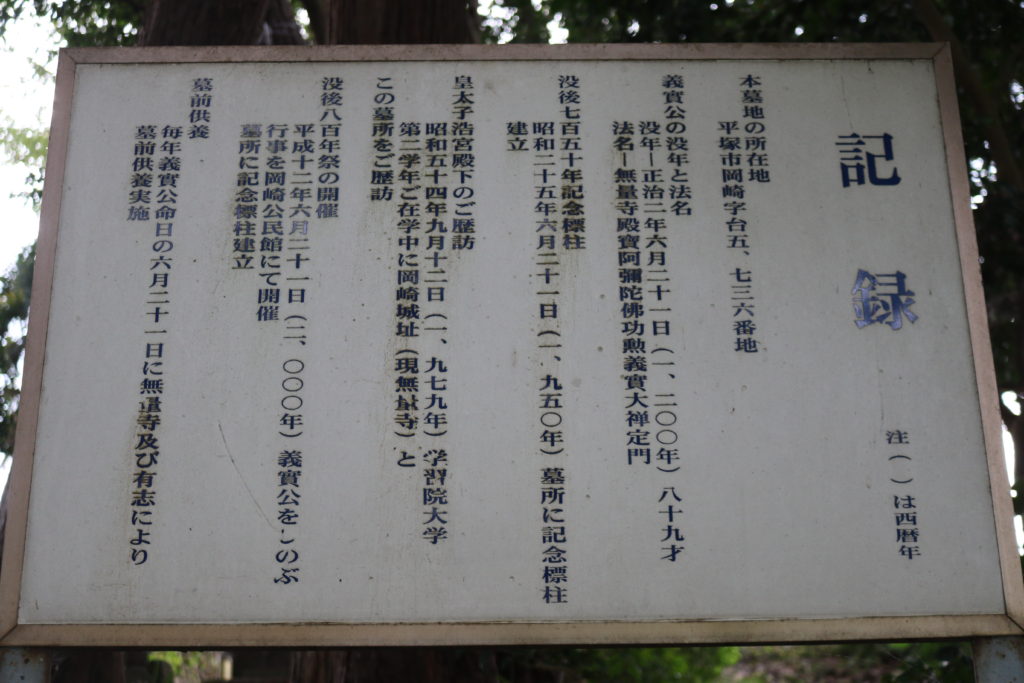 記録
注（ ）は西暦年
本墓地の所在地
平塚市岡崎字台五、七三六番地
義實公の没年と法名
没年―正治二年六月二十一日（一、二〇〇年）八十九才
法名―無量寺殿寶阿彌陀佛功勲義實大禅定門
没後七百五十年記念標柱
昭和二十五年六月二十一日（一、九五〇年）墓所に記念標柱
建立
皇太子浩宮殿下のご歴訪
昭和五十四年九月十二日（一、九七九年）学習院大学
第二学年ご在学中に岡崎城址（現無量寺）と
この墓所をご歴訪
没後八百年祭の開催
平成十二年六月二十一日（二、〇〇〇年）義實公をしのぶ
行事を岡崎公民館にて開催
墓所に記念標柱建立
墓前供養
毎年義實公命日の六月二十一日に無量寺及び有志により
墓前供養実施